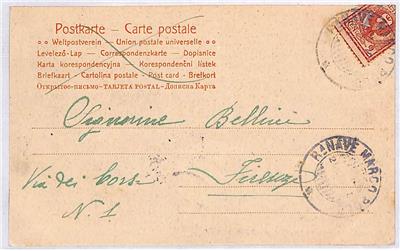 Postkarte – Carte postale
Weltpostverein – Union postale universelle
Levelező-Lap — Correspondenzkarte – Dopisnice
Karta korespondencyjna – Korespondenční lístek
Briefkaart – Cartolina postale - Post card - Brefkort
Открытое-письмо–TARJETA POSTAL–Дописна Карта
Signorine Bellini
Via dei
Firenze
N. 1
NAVE MARCO P
RANAVE MARCO P